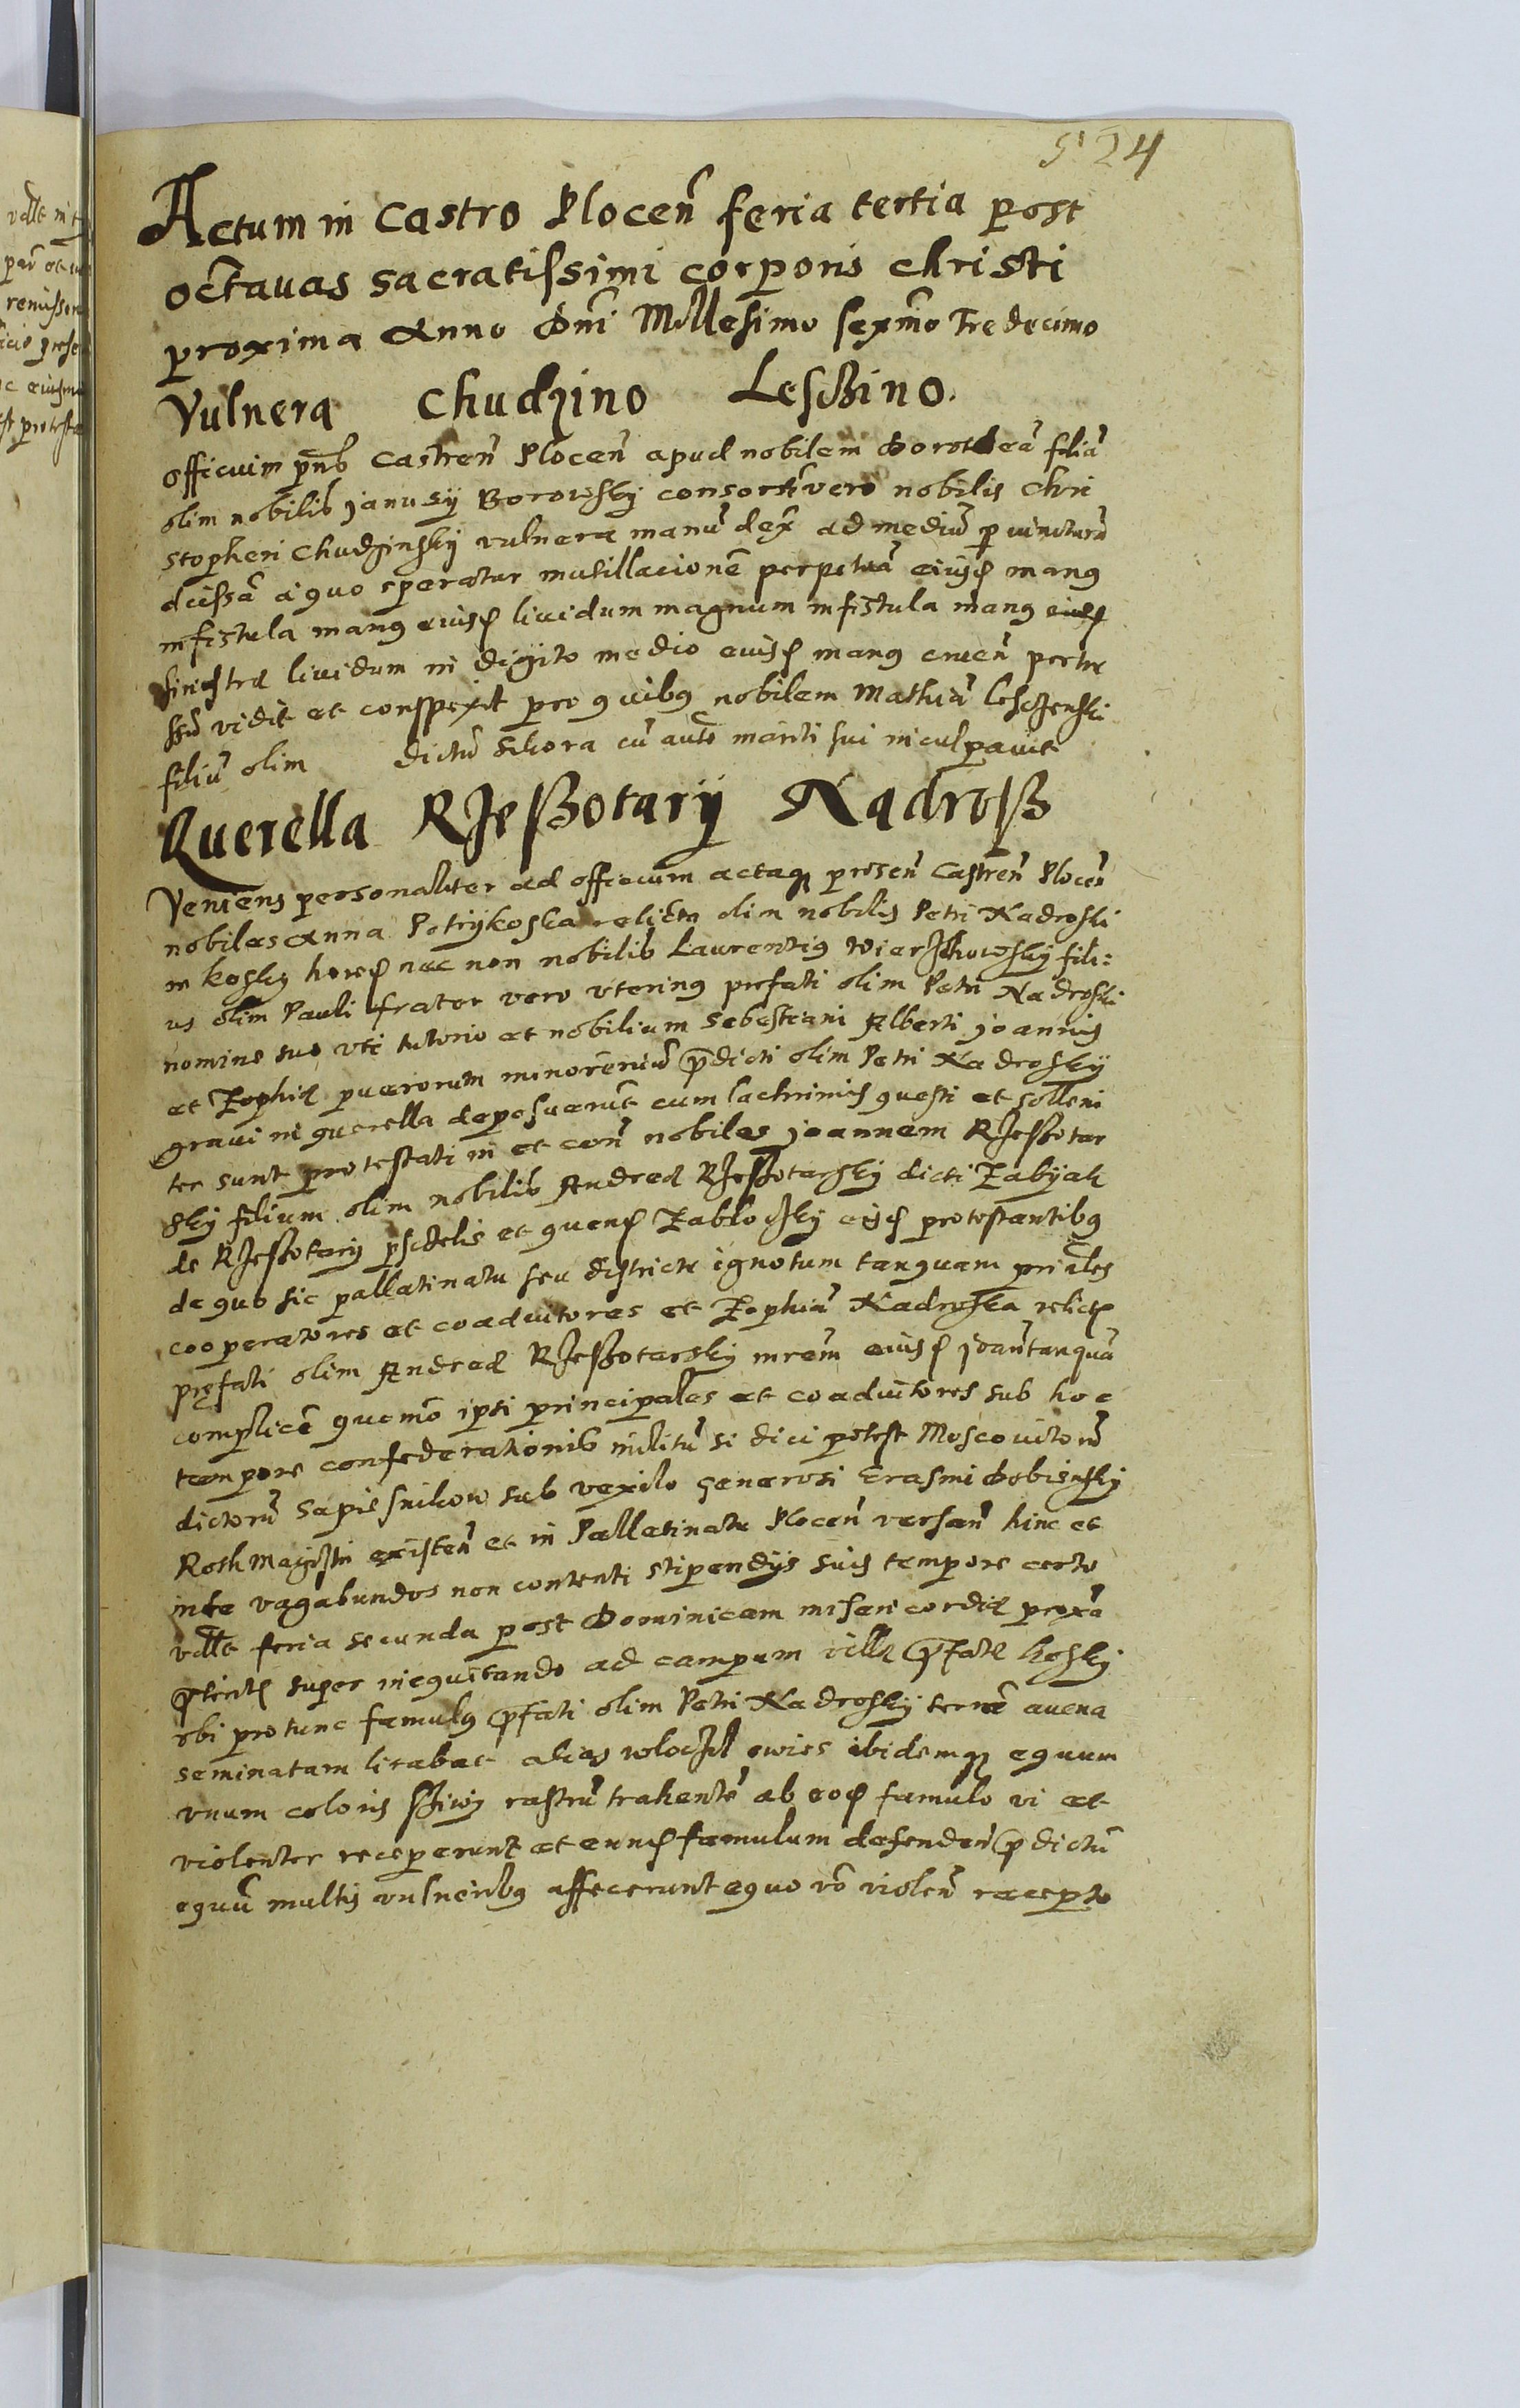 524
Actum in Castro Plocen̄ feria tertia post
octavas sacratissimi corporis christi
proxima Anno Dn̄i Millesimo sexm̄o Tredecimo
Vulnera Chudzino Leschino.
officium pn̄s Castren̄ Plocen̄ apud nobilem Dorotheā filiā
olim nobilis Janusÿ Borowsky consortē vero nobilis Chri
stopheri Chudzinsky vulnera manū dex̄ ad mediū p iuncturā
a quo speratur mutillacionē perpetuā eiusd manus
in fistula manus eiusd lividum magnum in fistula manus eiusd
sinistra lividum in digito medio eiusd manus
vidit et conspexit pro quibus nobilem Mathiā Lesczenski
filiū olim dictū Sikora cū mariti sui inculpavit
Querella Rzeszotary Nadrosz
Veniens personaliter ad officium actaq presen̄ Castren̄ Plocen̄
nobiles Anna Potrykoska relicta olim nobilis Petri Nadroski
in kosky hered nec non nobilis Laurentius fili:
us olim Pauli frater vero uterinus prefati olim Petri Nadroski
nomine suo uti tutorio et nobilium Sebestiani Alberti Joannis
et Zophiæ puerorum minorenniū p̄dicti olim Petri Nadrosky
gravi in querella deposuerūt cum lachrimis questi et solleni
ter sunt protestati in et con̄ nobiles Joannem Rzeszotar
sky filium olim nobilis Andreæ Rzeszotarsky dicti Zabÿak
de Rzeszotary et quend Zablocky eisd protestantibus
de quo sic pallatinatu seu districtu ignotum tanquam prin̄ales
cooperatores et coadiutores et Zophiā Nadroska relictā
pręfati olim Andreæ Rzeszotarsky mrem̄ eiusd Joan̄ tanquā
complicē quomō ipsi principales et coadiutores sub hoc
tempore confederationis militū si dici potest Moscovitorū
dictorū Sapiesnikow sub vexilo generosi Erasmi Dobiensky
Rothmagistri existen̄ et in Pallatinatu Plocen̄ versan̄ hinc et
inde vagabundos non contenti stipendÿs suis tempore certo
vdltt feria secunda post Dominicam misericordiæ proxā
p̄terit super inequitando ad campum villæ p̄fatæ Kosky
ubi pro tunc famulus p̄fati olim Petri Nadrosky terrā avena
seminatam lirabat alias owies ibidemq equum
unum coloris rastrū trahentē ab eod famulo vi et
violenter receperunt et eund famulum defenden̄ p̄dictū
equū multis vulneribus affecerunt equo vō violen̄ recepto